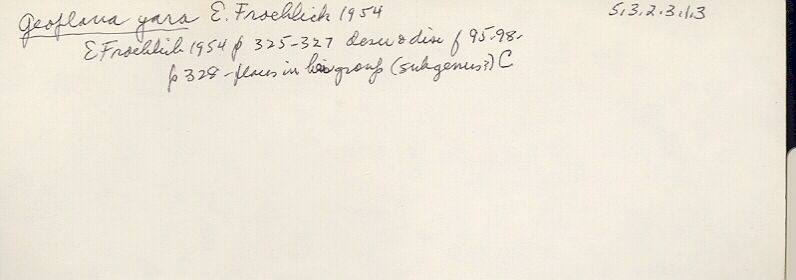 Geoplana yara E. Froehlich 1954 5.3.2.3.1.3
E Froehlich 1954 p 325-327 descr & disc f 95-98.
p 328 - places in her group (subgenus?) C